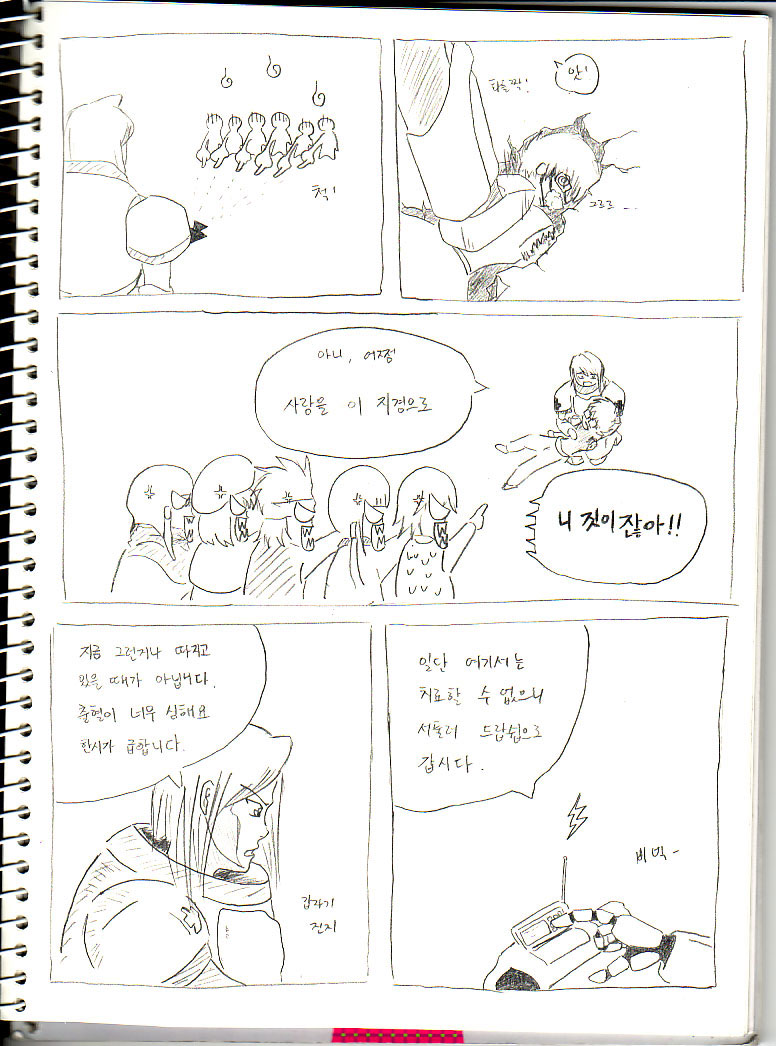 척!
앗!
화들짝!
그르르...
아니, 어쩜
사람을 이 지경으로
니 짓이잖아!!
지금 그런거나 따지고
있을 때가 아닙니다.
출혈이 너무 심해요
한시가 급합니다.
갑자기
진지
일단 여기서는
치료할 수 없으니
서둘러 드랍쉽으로
갑시다.
삐빅~